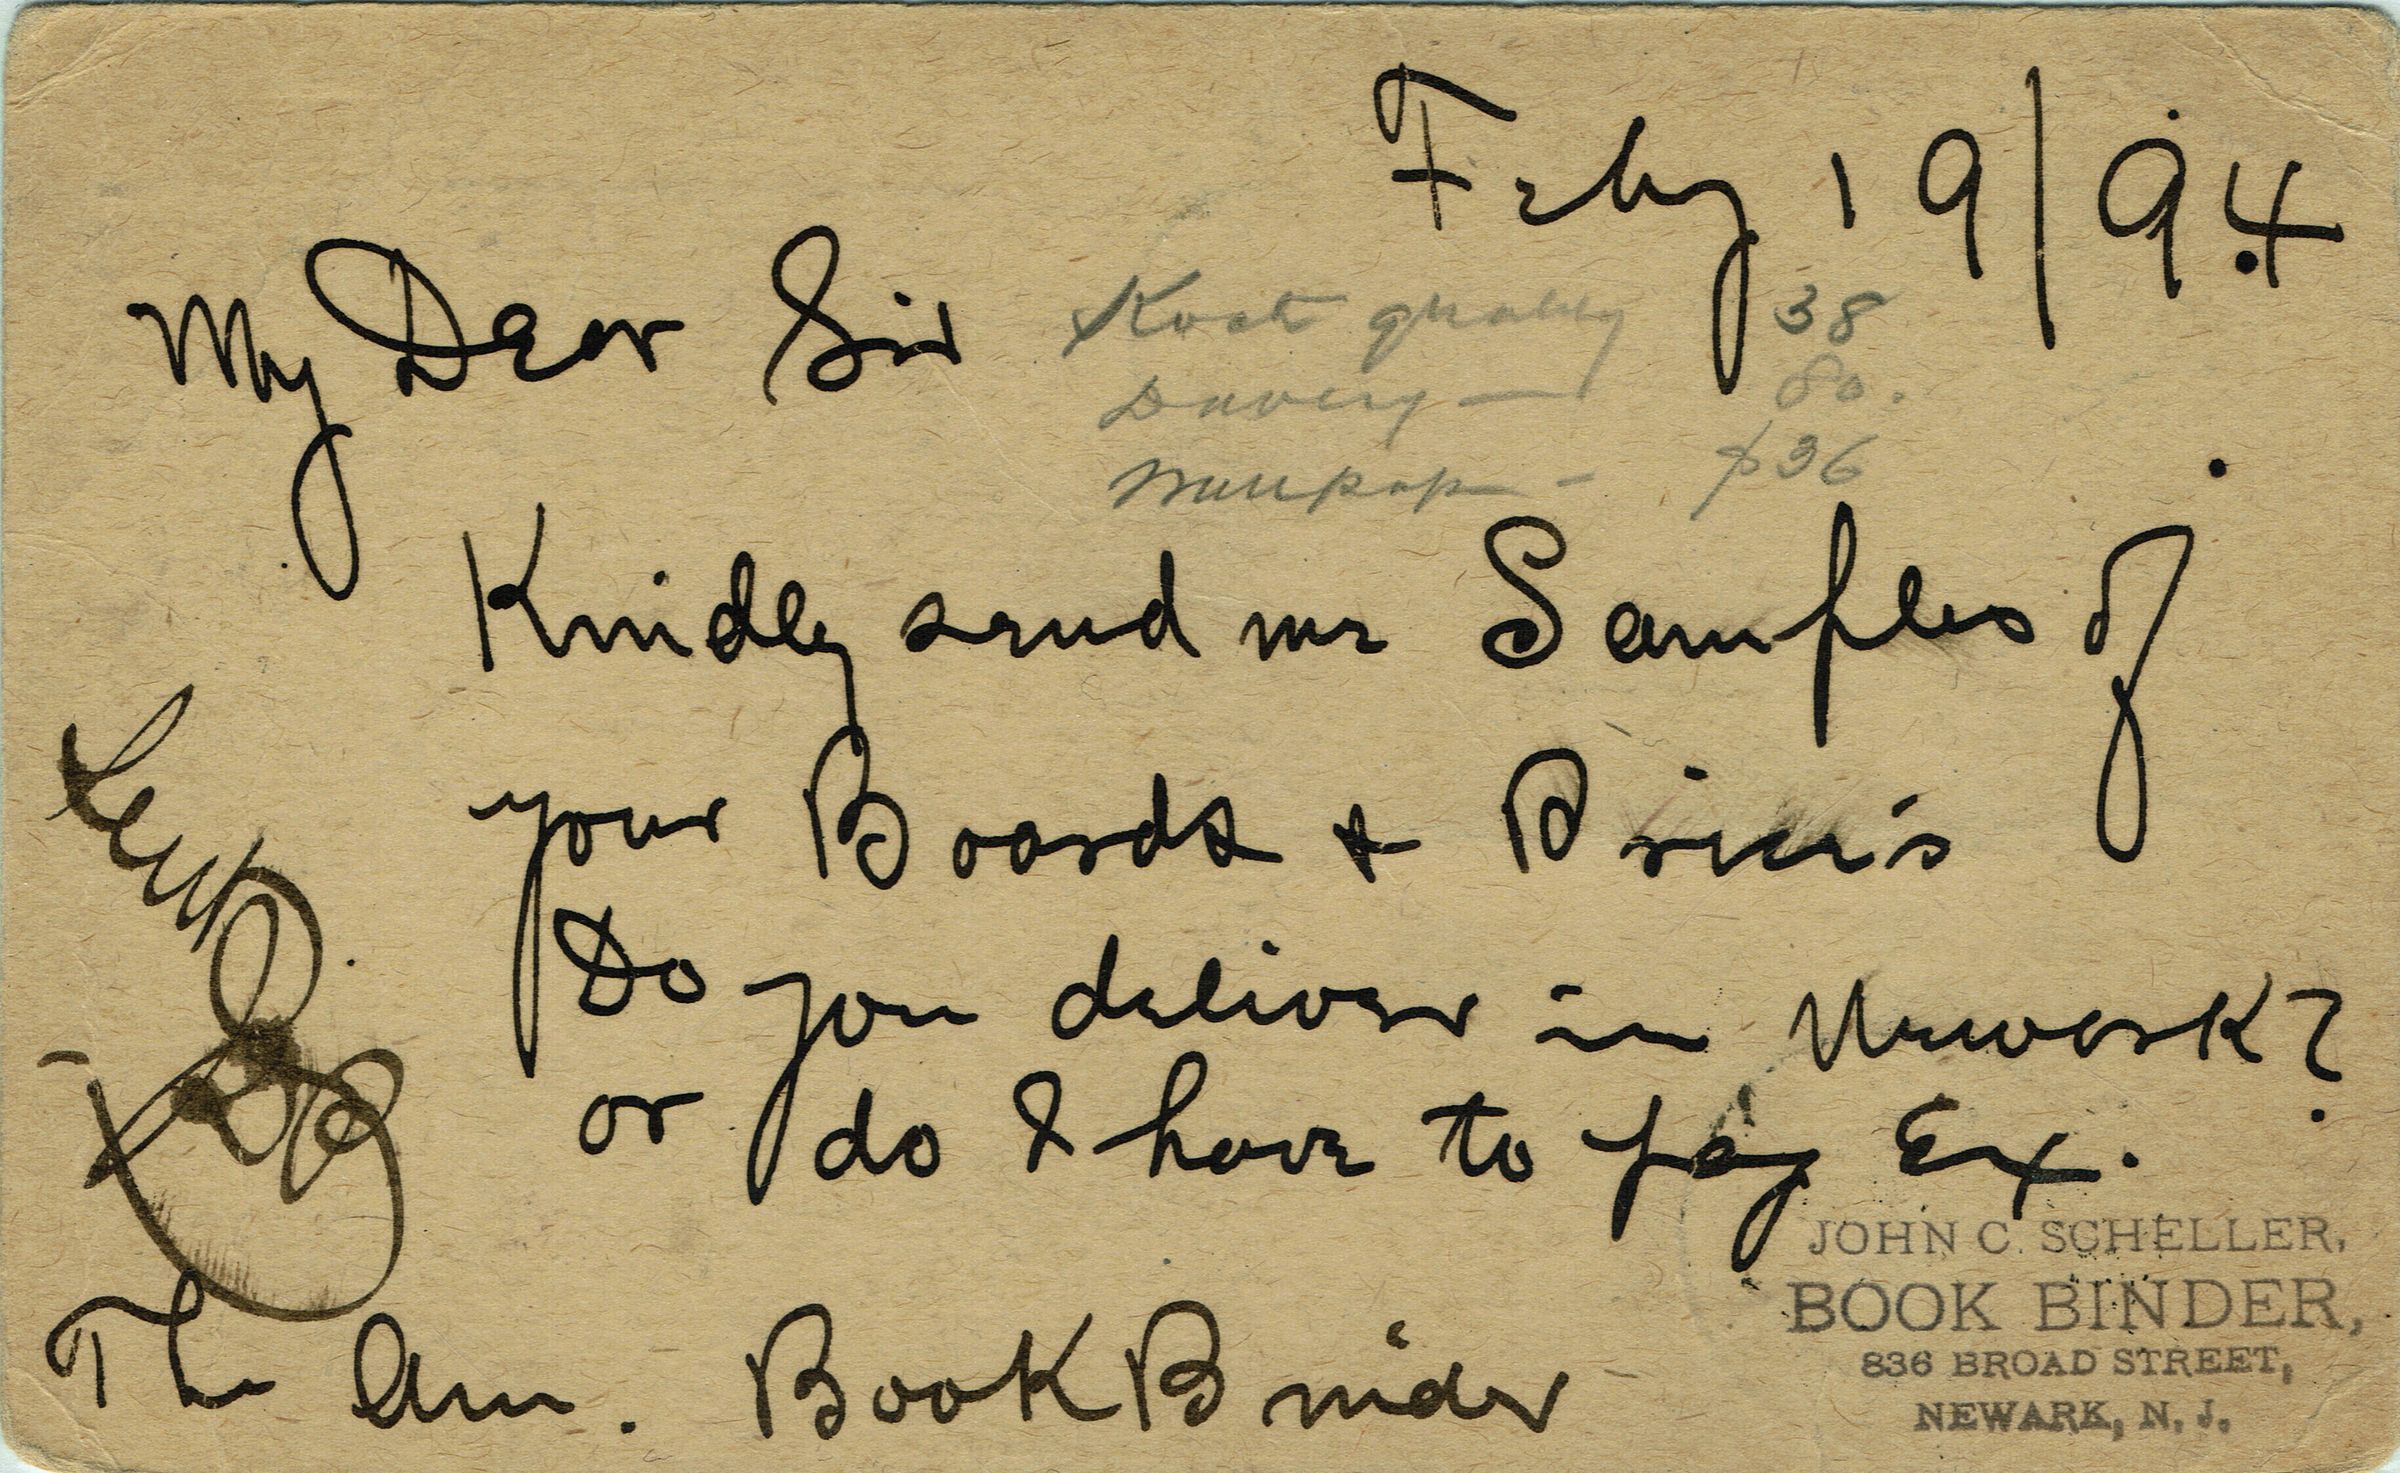 Feby 19/94
My Dear Sir
quality 38
Davey — 80.
36
Kindly send me Samples of
your Boards & Prices
Do you deliver in Newark?
or do I have to pay Ex.
The Am. Book Binder
JOHN C. SCHELLER,
BOOK BINDER,
836 BROAD STREET,
NEWARK, N. J.